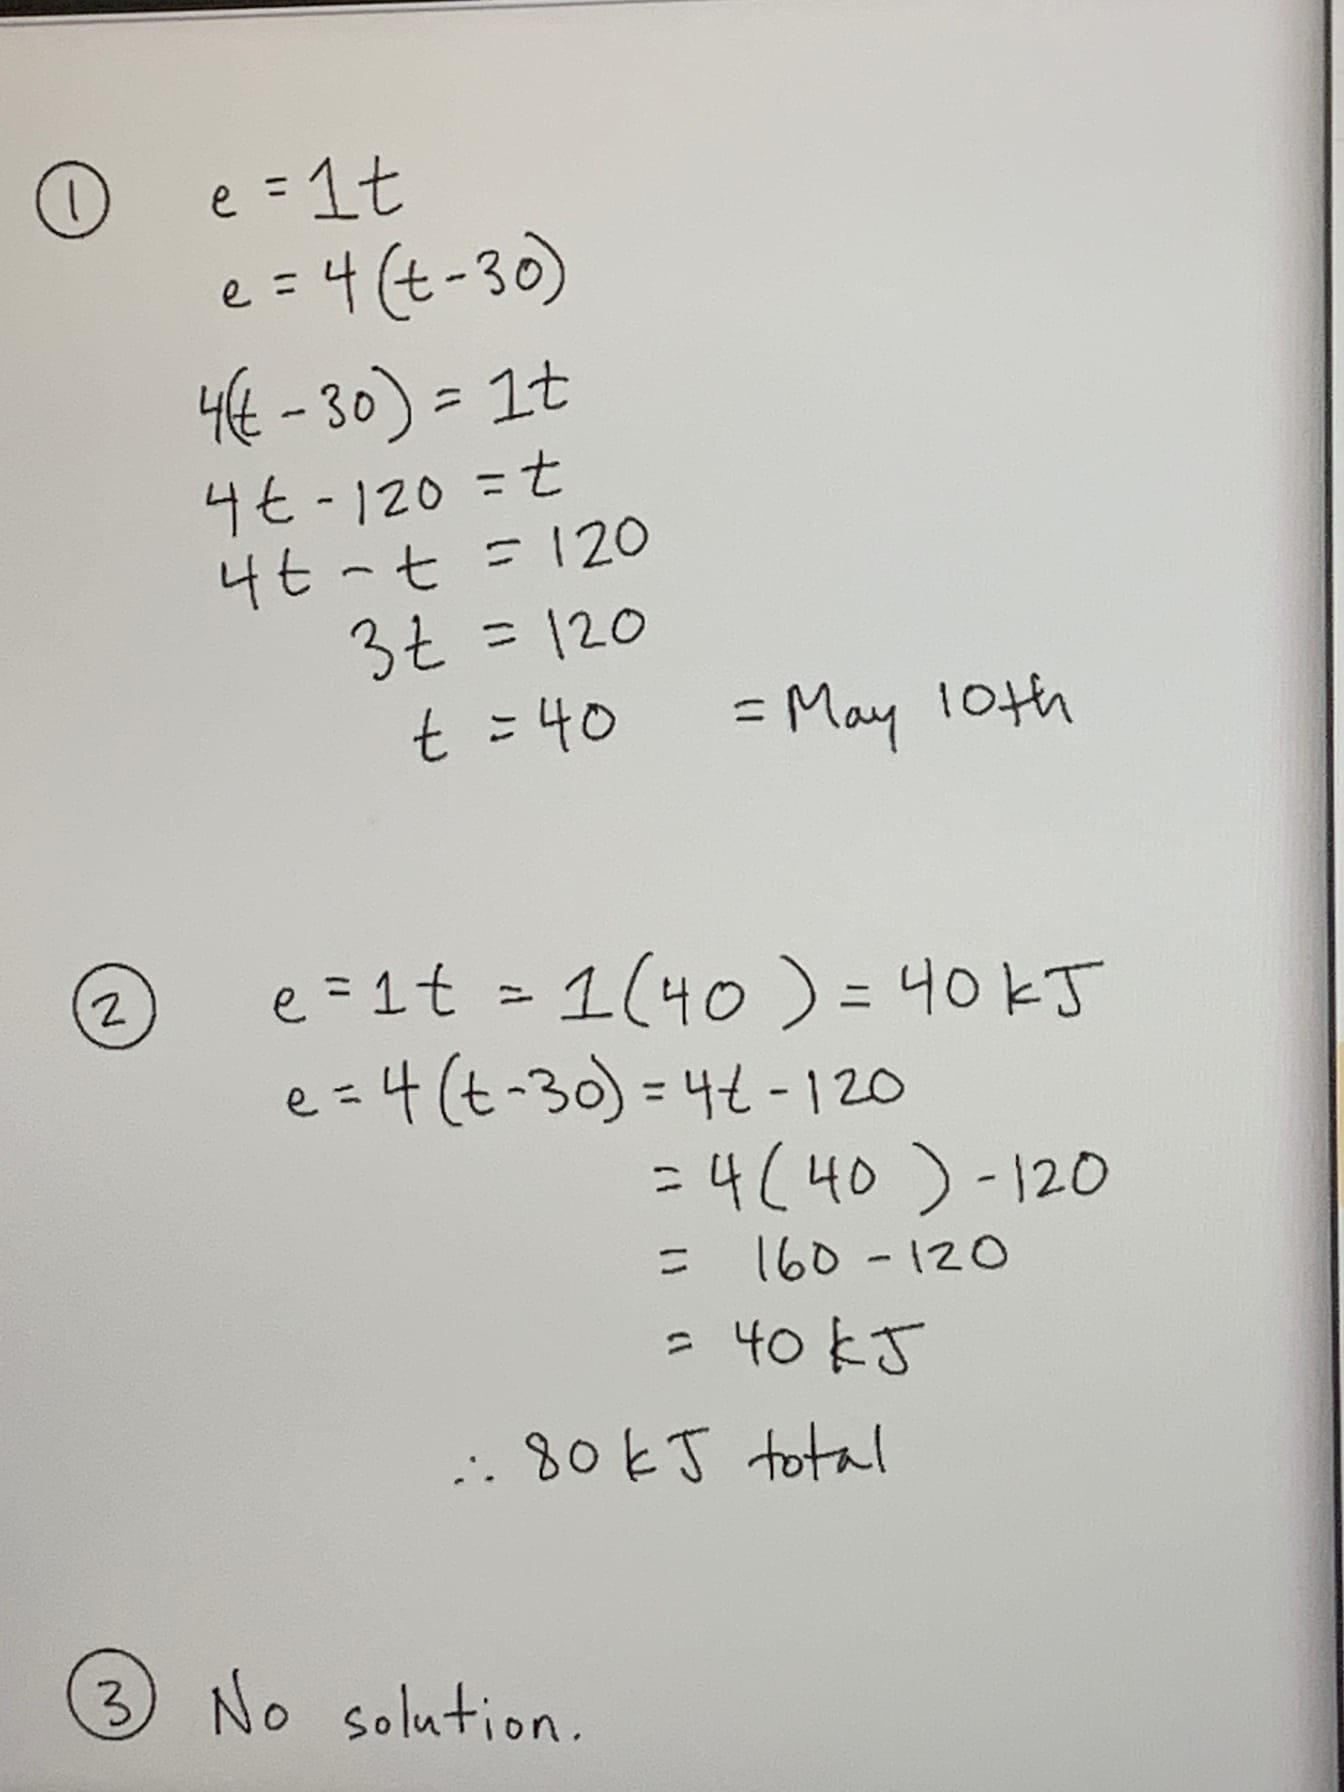 ① e = 1t
e = 4(t-30)
4(t-30) = 1t
4t-120 = t
4t-t = 120
3t = 120
t = 40 = May 10th
② e = 1t = 1(40) = 40 kJ
e = 4(t-30) = 4t-120
= 4(40)-120
= 160-120
= 40 kJ
∴ 80 kJ total
③ No solution.